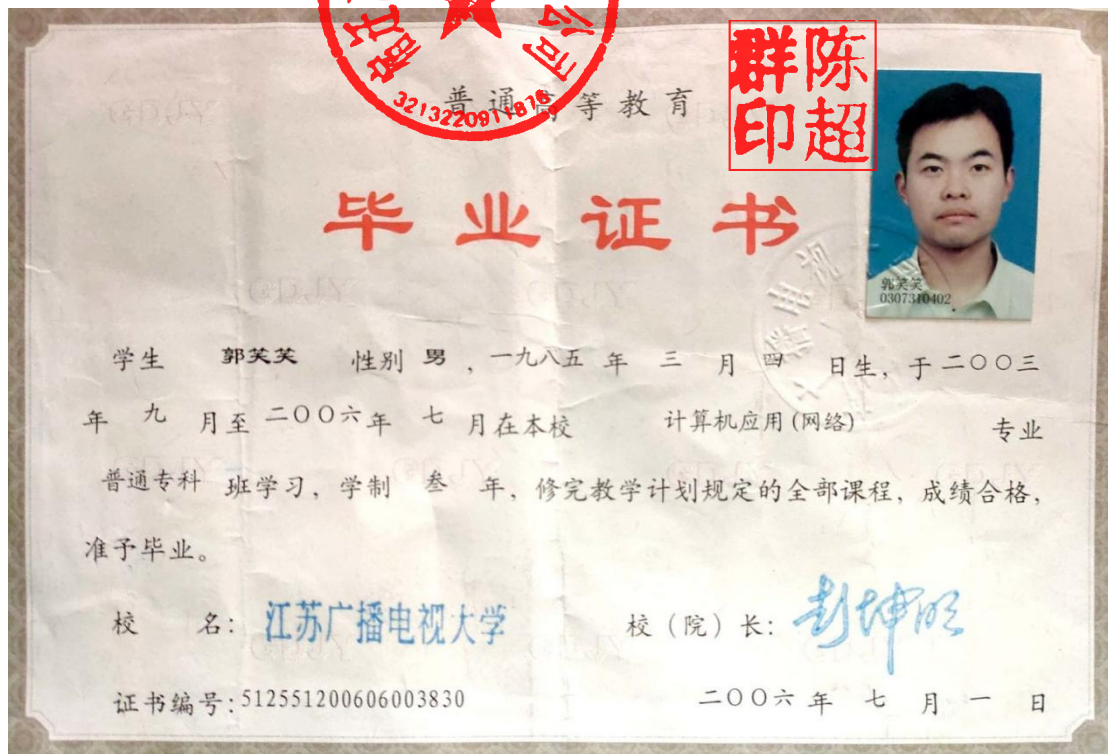 公司
3213220911876
群陈
印超
普通高等教育
毕业证书
郭笑笑
0307310402
学生 郭笑笑 性别 男，一九八五 年 三 月 四 日生，于二〇〇三
年 九 月至 二〇〇六年 七 月在本校 计算机应用(网络) 专业
普通专科 班学习，学制 叁 年，修完教学计划规定的全部课程，成绩合格，
准予毕业。
校 名：江苏广播电视大学 校（院）长：彭坤明
证书编号：512551200606003830 二〇〇六年 七 月 一 日